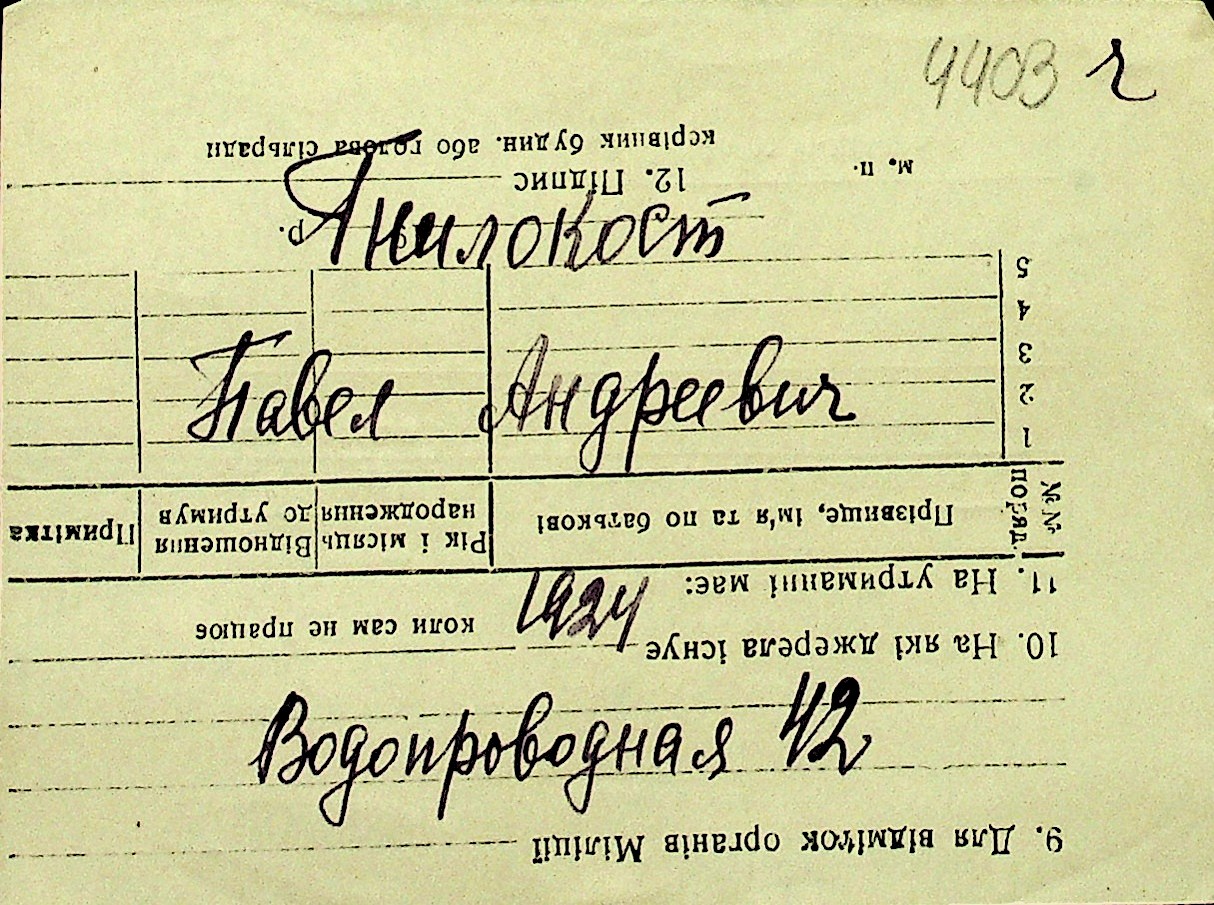 4403 г
Гнилокост
Павел Андреевич
1924
Водопроводная 42
9. Для відміток органів Міліції
10. На які джерела існує
коли сам не працює
11. На утриманні має:
№№ поряд.
Прізвище, ім'я та по батькові
Рік і місяць народження
Відношення до утримув
Примітка
1
2
3
4
5
р.
м. п.
12. Підпис
керівник будин. або голова сільради